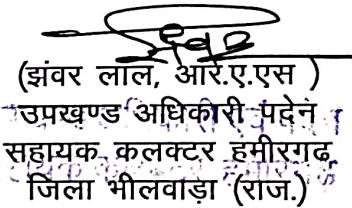 (झंवर लाल, आर.ए.एस )
उपखण्ड अधिकारी पदेन
सहायक कलक्टर हमीरगढ
जिला भीलवाड़ा (राज.)